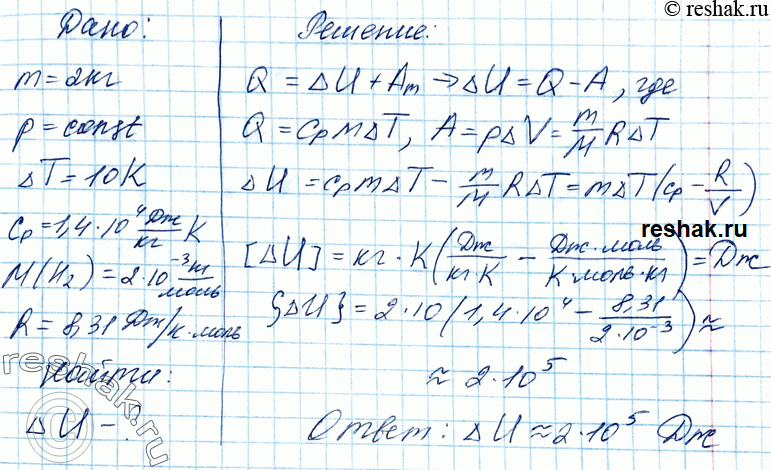 © reshak.ru
Дано:
m = 2кг
p = const
ΔT = 10K
Cp = 1,4·10⁴ Дж/кг K
M(H₂) = 2·10⁻³ кг/моль
R = 8,31 Дж/К·моль
Найти:
ΔU - ?
Решение:
Q = ΔU + Aₘ → ΔU = Q - A, где
Q = Cp m ΔT, A = pΔV = m/M RΔT
ΔU = cp m ΔT - m/M RΔT = mΔT(cp - R/V)
reshak.ru
[ΔU] = кг · K(Дж/кг K - Дж·моль/K моль·кг) = Дж
{ΔU} = 2·10(1,4·10⁴ - 8,31/2·10⁻³) ≈
≈ 2·10⁵
Ответ: ΔU ≈ 2·10⁵ Дж